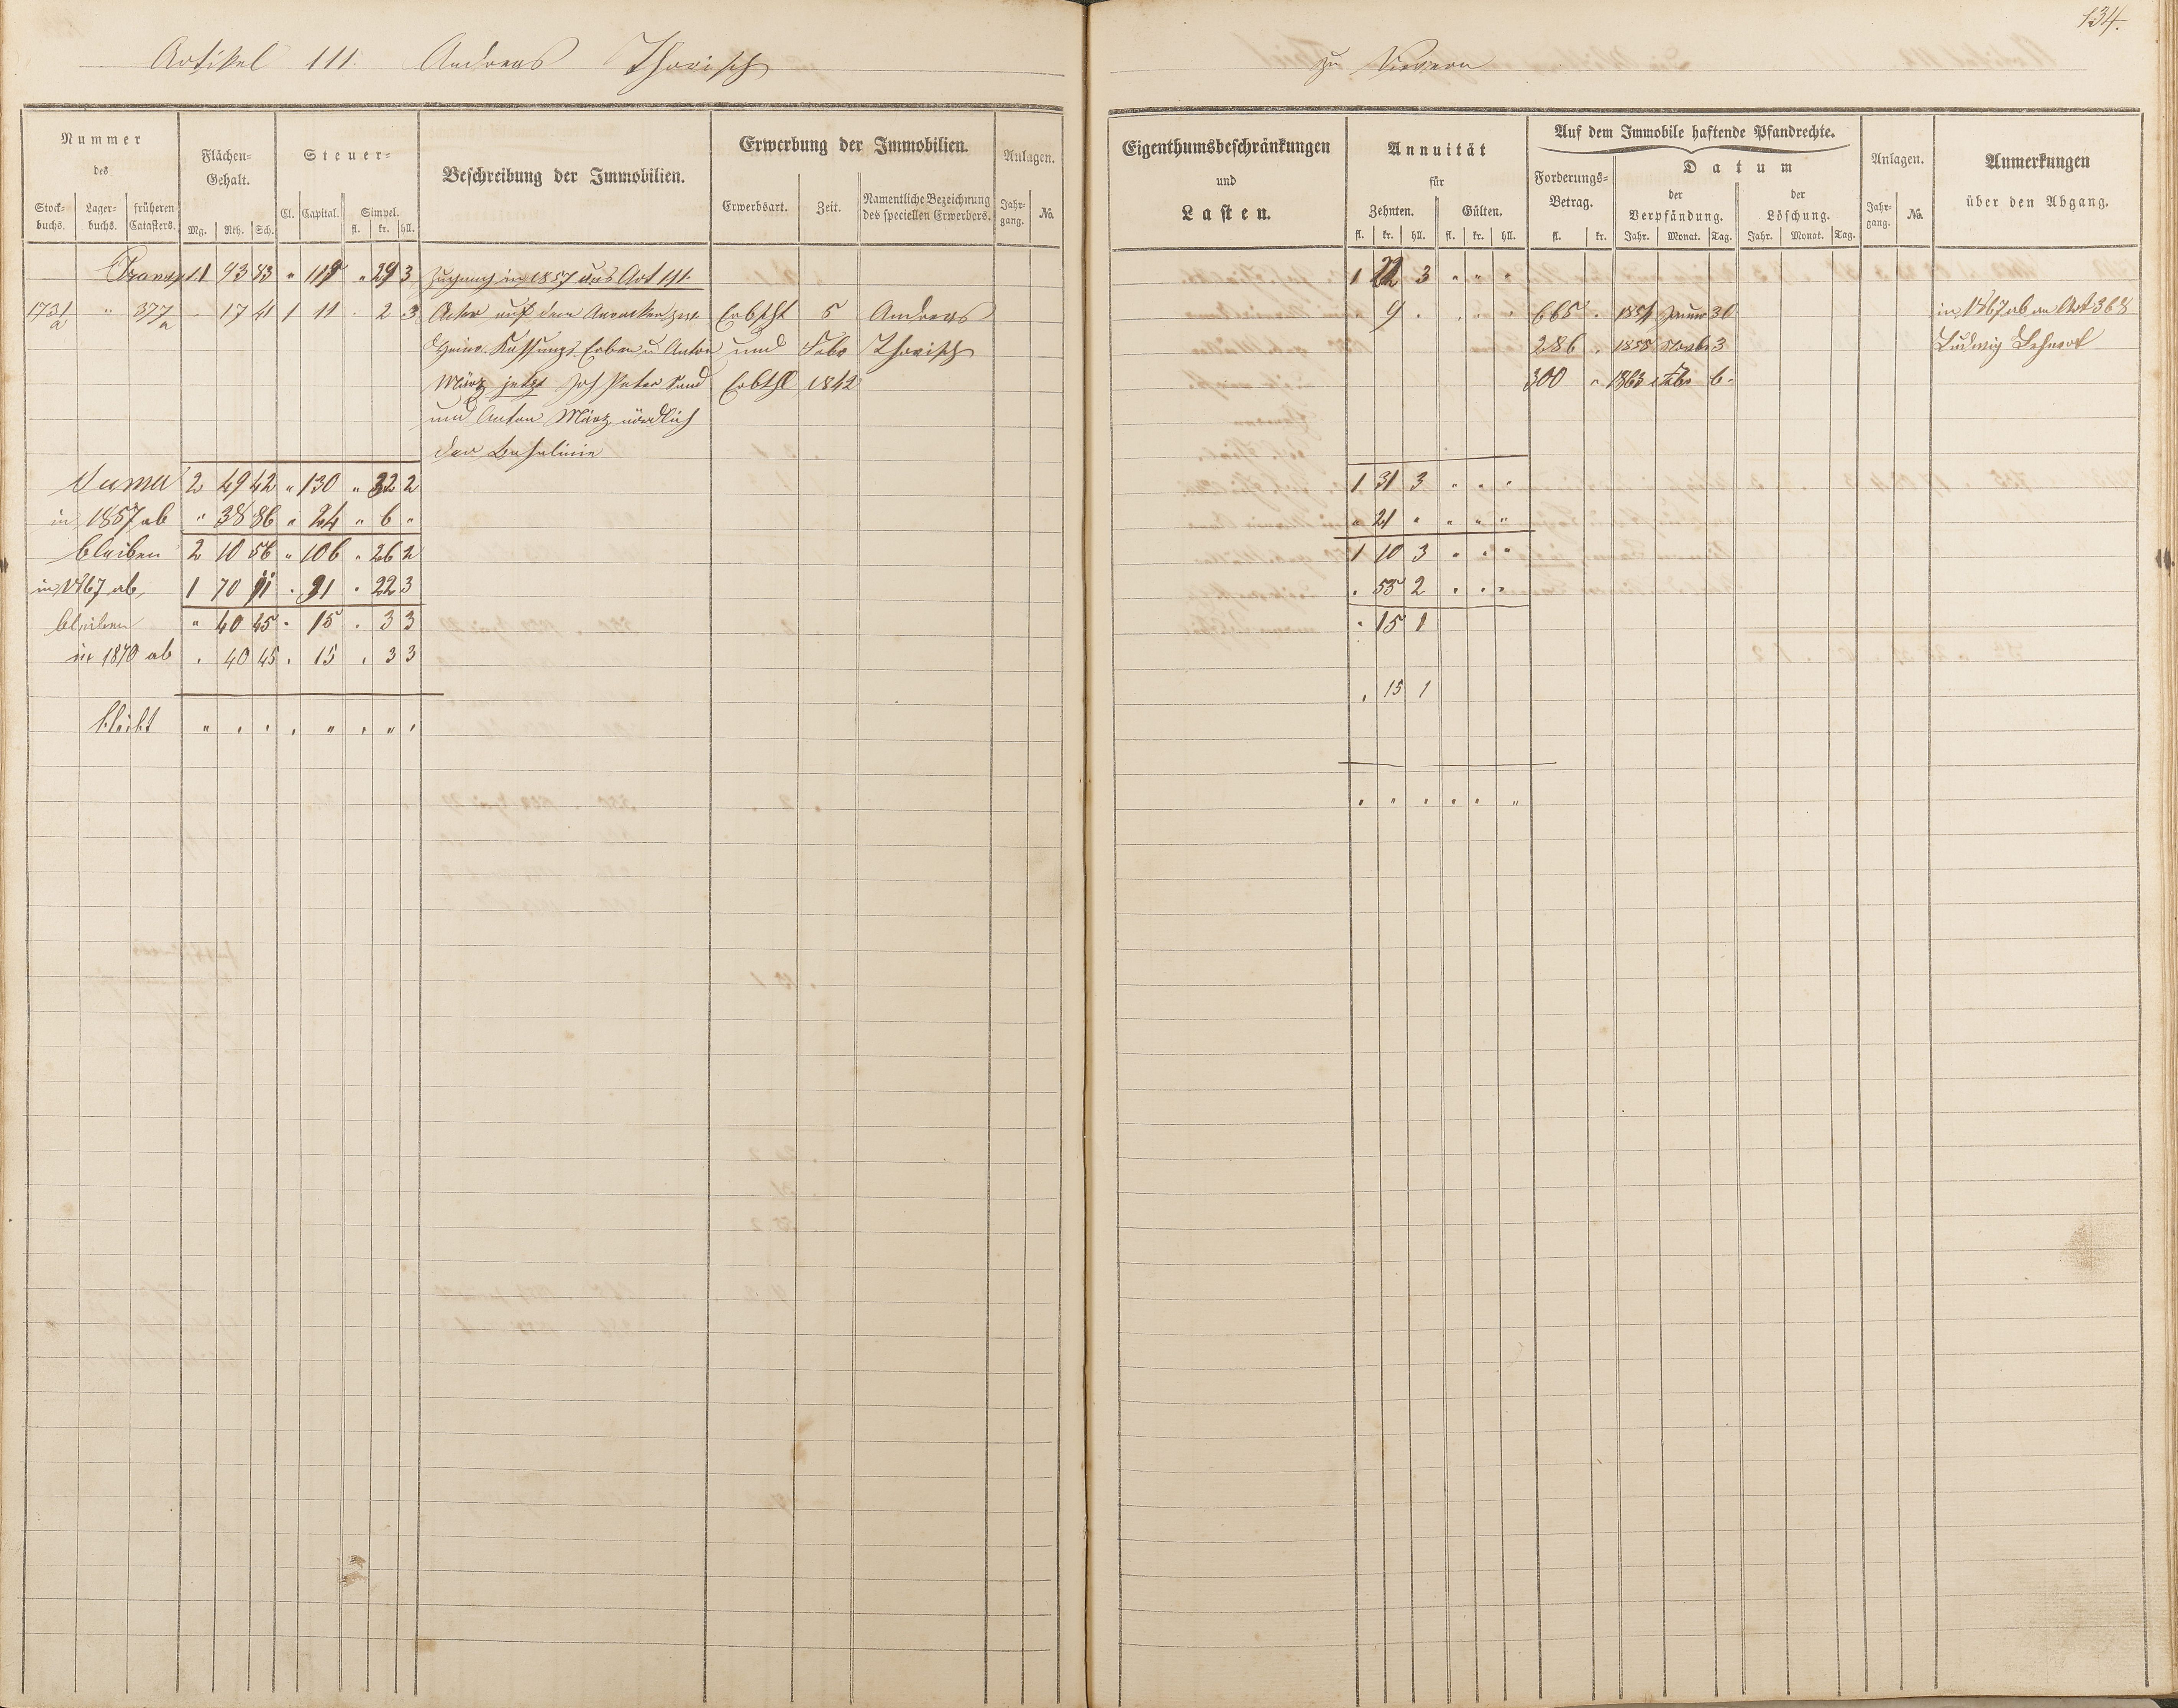 134.
Artikel 111. Andreas Thorisch
zu
Nummer
des
Stock-
buchs.
Lager-
buchs.
früheren
Catasters.
Flächen-
Gehalt.
Mg. Rth. Sch.
Steuer-
Cl. Capital. Simpel.
fl. kr. hll.
Beschreibung der Immobilien.
Erwerbung der Immobilien.
Erwerbsart. Zeit. Namentliche Bezeichnung
des speciellen Erwerbers.
Anlagen.
Jahr-
gang. No.
Eigenthumsbeschränkungen
und
Lasten.
Annuität
für
Zehnten. Gülten.
fl. kr. hll. fl. kr. hll.
Auf dem Immobile haftende Pfandrechte.
Forderungs-
Betrag.
fl. kr.
Datum
der
Verpfändung.
Jahr. Monat. Tag.
der
Löschung.
Jahr. Monat. Tag.
Anlagen.
Jahr-
gang. No.
Anmerkungen
über den Abgang.
Transp. 93 83 " 119 " 29 3 Zugang in 1857 aus Art 1 22 3 " " "
1731 a " 377 a . 17 41 1 11 . 2 3 Acker auf dem zw. Erbscht 5 Andreas 9 . 665 . 1854 Januar 30 in 1867 ab an Art 368
Heinr. Erben u Anton und Febr Thorisch 286 . 1855 Novbr 3 Ludwig Lehnert
März jetzt Joh Peter und Erbthl 1842 300 " 1863 Febr 6.
und Anton März nördlich
der
Suma 2 49 42 " 130 " 32 2 1 31 3 " " "
in 1857 ab " 38 86 " 24 " 6 " " 21 " " " "
bleiben 2 10 56 " 106 " 26 2 1 10 3 " " "
in 1867 ab 1 70 11 . 91 . 22 3 . 55 2 . . .
bleiben " 40 45 . 15 . 3 3 . 15 1
in 1870 ab . 40 45 . 15 . 3 3
. 15 1
bleibt " . . . " . " .
. " . . . "